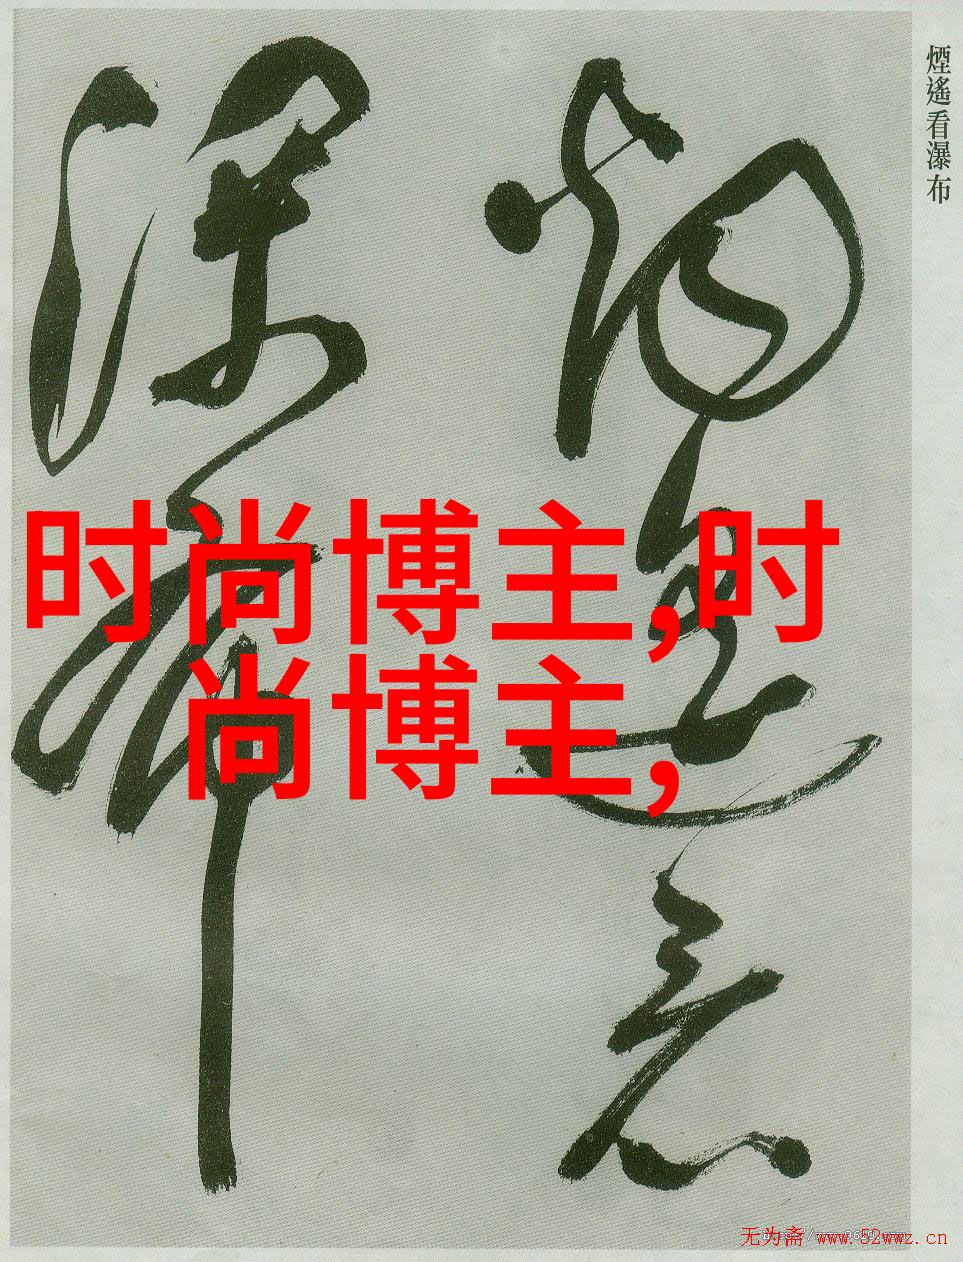 煙遙看瀑布
烟遥看
瀑布
时尚博主,时
尚博主,
无为斋 www.52wwz.cn